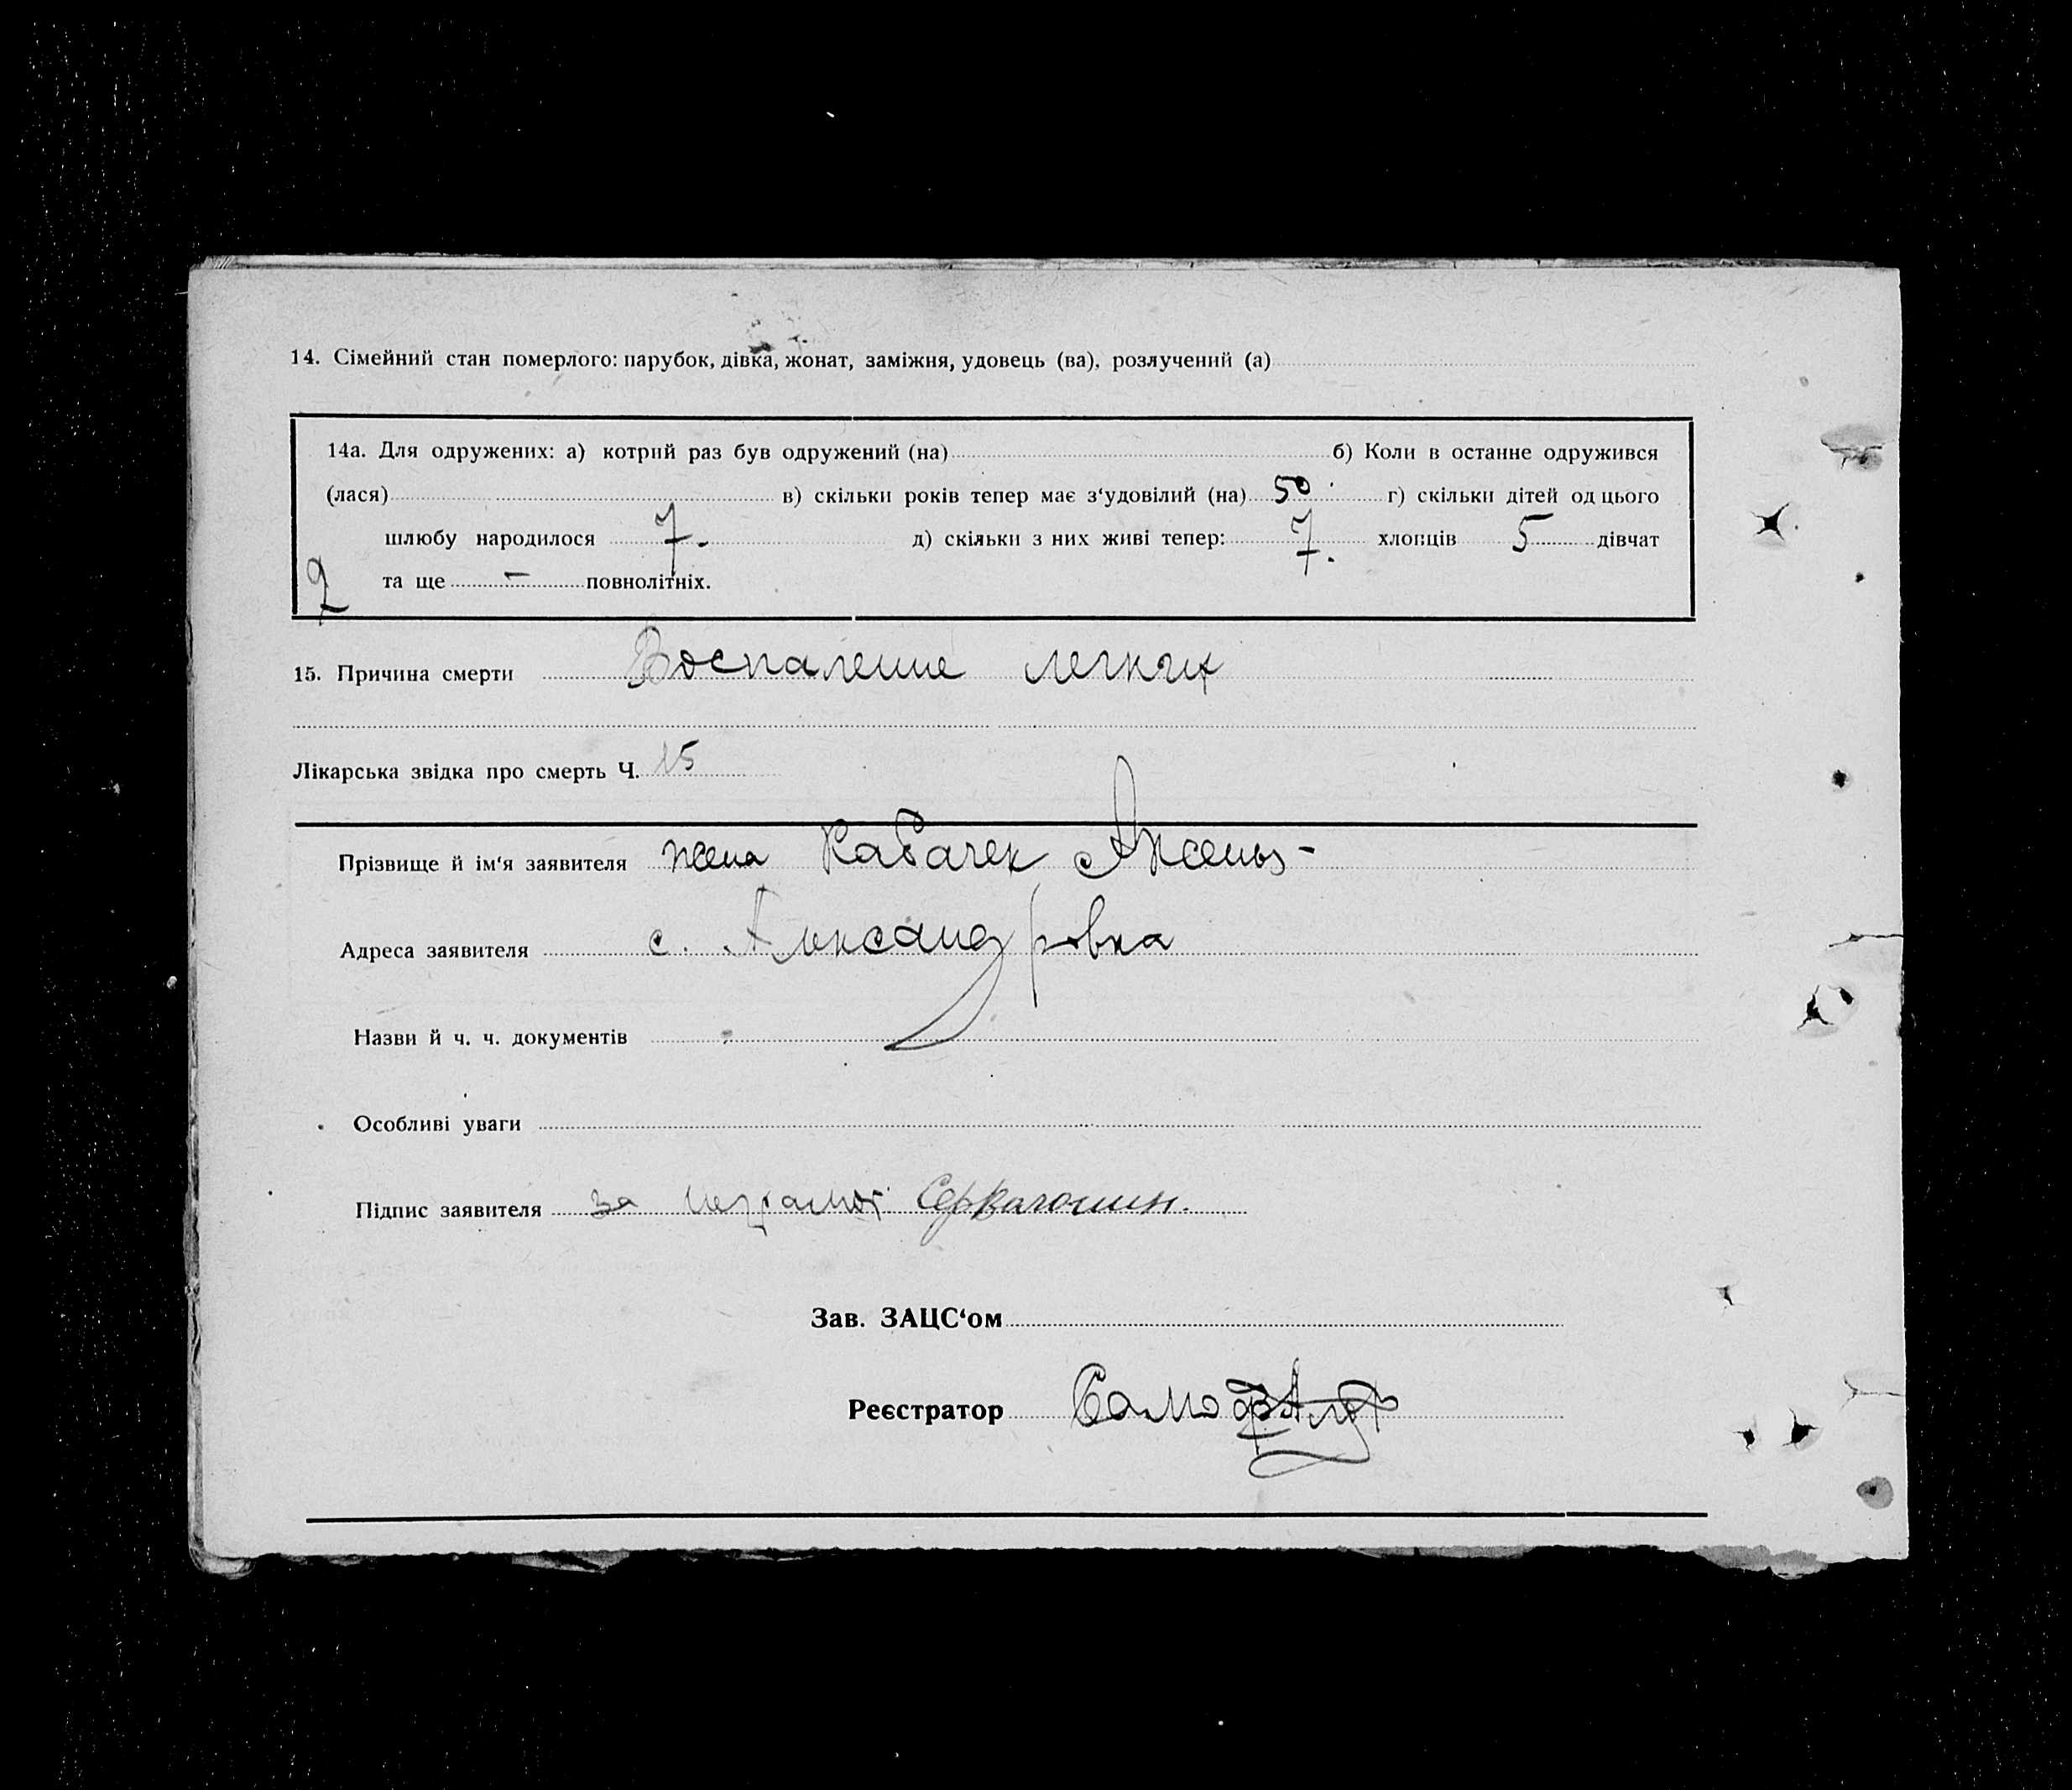 14. Сімейний стан померлого: парубок, дівка, жонат, заміжня, удовець (ва), розлучений (а)
14а. Для одружених: а) котрий раз був одружений (на) б) Коли в останне одружився
(лася) в) скільки років тепер має з‘удовілий (на) 50 г) скільки дітей од цього
шлюбу народилося 7. д) скільки з них живі тепер: 7. хлопців 5 дівчат
2 та ще – повнолітніх.
15. Причина смерти Воспаление легких
Лікарська звідка про смерть Ч. 15
Прізвище й ім‘я заявителя жена Кабачек
Адреса заявителя с. Александровка
Назви й ч. ч. документів
Особливі уваги
Підпис заявителя за неграмот
Зав. ЗАЦС‘ом
Реєстратор